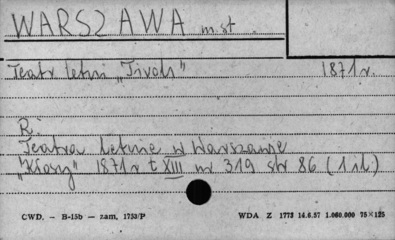 WARSZAWA m.st.
Teatr letni „Tivoli" 1871 r.
R.
Teatra Letnie w Warszawie
"Kłosy" 1871 r t XIII nr 319 str 86 (1 il.)
CWD. — B-15b — zam. 1753/P WDA. Z 1773 14.6.57 1.000.000 75×125